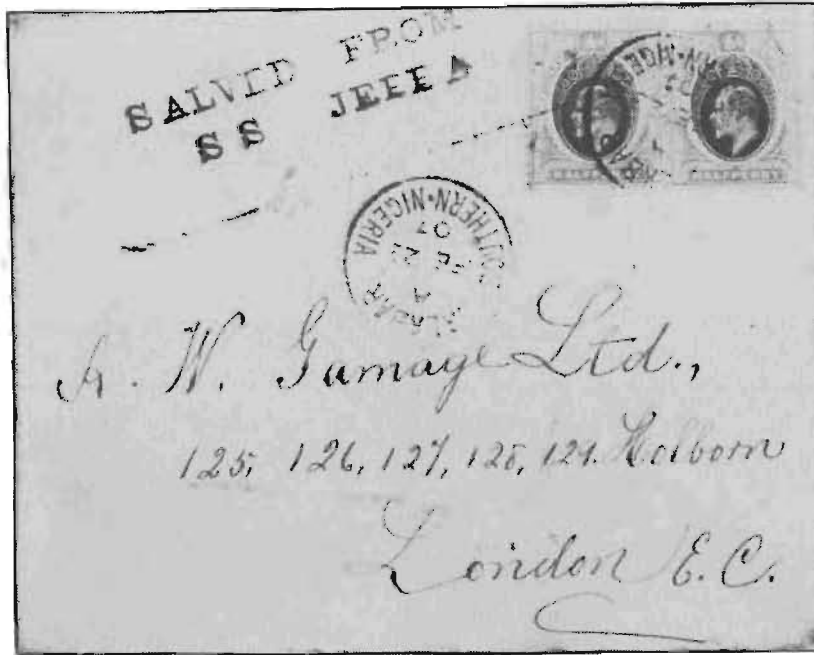 SALVED FROM
SS JEBBA
SOUTHERN·NIGERIA
FE 22
07
A
CALABAR
HALFPENNY
A. W. Gamage Ltd.,
125, 126, 127, 128, 129. Holborn
London E.C.